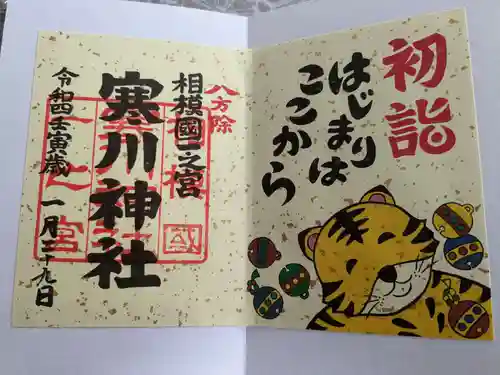 初詣
はじまりは
ここから
八方除
相模國一之宮
寒川神社
令和四壬寅歳
一月二十九日